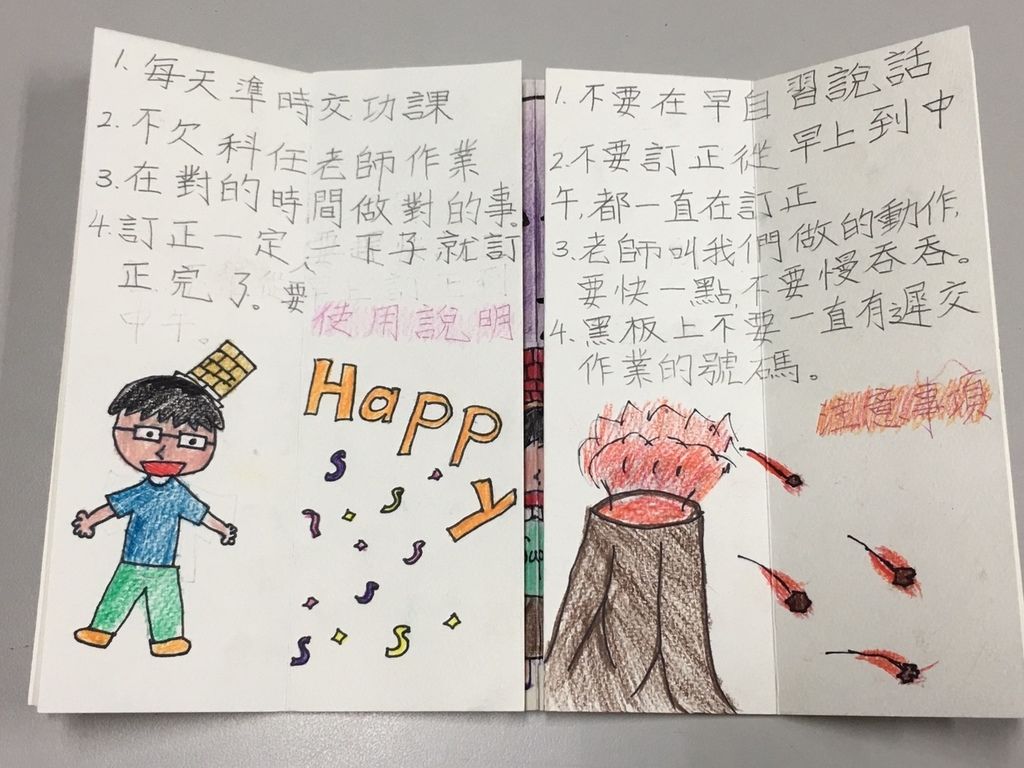 1. 每天準時交功課
2. 不欠科任老師作業
3. 在對的時間做對的事。
4. 訂正一定要一下子就訂
正完了。
使用說明
Happy
1. 不要在早自習說話
2. 不要訂正從早上到中
午,都一直在訂正
3. 老師叫我們做的動作,
要快一點,不要慢吞吞。
4. 黑板上不要一直有遲交
作業的號碼。
注意事項